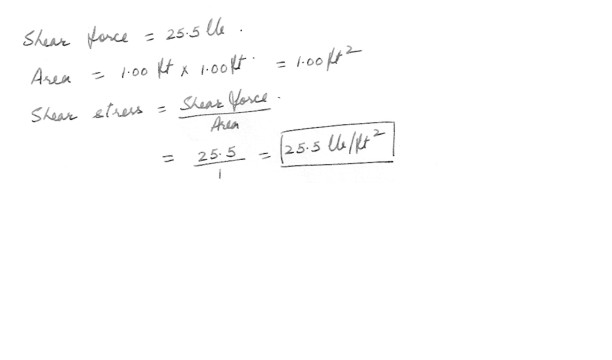 Shear force = 25.5 lb.
Area = 1.00 ft x 1.00 ft. = 1.00 ft²
Shear stress = Shear force.
Area
= 25.5 = 25.5 lb/ft²
1